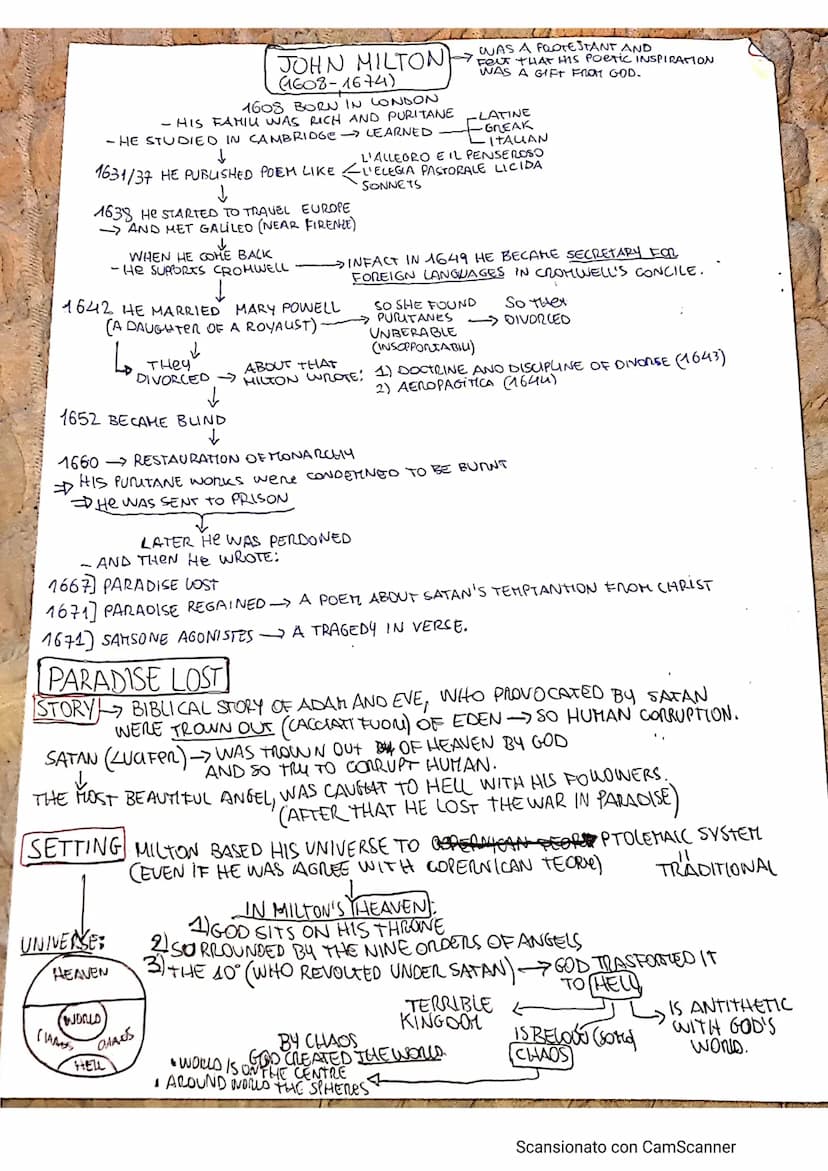 JOHN MILTON
(1608-1674)
→ WAS A PROTESTANT AND
FELT THAT HIS POETIC INSPIRATION
WAS A GIFT FROM GOD.
1608 BORN IN LONDON
- HIS FAMILI WAS RICH AND PURITANE
- HE STUDIED IN CAMBRIDGE → LEARNED
LATINE
GREAK
ITALIAN
1631/37 HE PUBLISHED POEM LIKE
L'ALLEGRO E IL PENSEROSO
L'ELEGIA PASTORALE LICIDA
SONNETS
1638 HE STARTED TO TRAVEL EUROPE
→ AND MET GALILEO (NEAR FIRENZE)
WHEN HE COME BACK
- HE SUPPORTS CROMWELL
→ INFACT IN 1649 HE BECAME SECRETARY FOR
FOREIGN LANGUAGES IN CROMWELL'S CONCILE.
1642 HE MARRIED MARY POWELL
(A DAUGHTER OF A ROYALIST)
→ SO SHE FOUND
PURITANES
UNBERABLE
(INSOPPORTABILI)
→ SO THEY
DIVORCED
THEY
DIVORCED → ABOUT THAT
MILTON WROTE:
1) DOCTRINE AND DISCIPLINE OF DIVORSE (1643)
2) AEROPAGITICA (1644)
1652 BECAME BLIND
1660 → RESTAURATION OF MONARCHY
⇒ HIS PURITANE WORKS WERE CONDEMNED TO BE BURNT
⇒ HE WAS SENT TO PRISON
LATER HE WAS PERDONED
- AND THEN HE WROTE:
1667] PARADISE LOST
1671] PARADISE REGAINED → A POEM ABOUT SATAN'S TEMPTANTION FROM CHRIST
1671] SAMSONE AGONISTES → A TRAGEDY IN VERSE.
PARADISE LOST
STORY → BIBLICAL STORY OF ADAM AND EVE, WHO PROVOCATED BY SATAN
WERE TROWN OUT (CACCIATI FUORI) OF EDEN → SO HUMAN CORRUPTION.
SATAN (LUCIFER) → WAS TROWN OUT OF HEAVEN BY GOD
AND SO TRY TO CORRUPT HUMAN.
THE MOST BEAUTIFUL ANGEL, WAS CAUGHT TO HELL WITH HIS FOLLOWERS.
(AFTER THAT HE LOST THE WAR IN PARADISE)
SETTING MILTON BASED HIS UNIVERSE TO PTOLEMAIC SYSTEM
(EVEN IF HE WAS AGREE WITH COPERNICAN TEORY)
=
TRADITIONAL
IN MILTON'S HEAVEN:
1) GOD SITS ON HIS THRONE
2) SORROUNDED BY THE NINE ORDERS OF ANGELS
3) THE 10° (WHO REVOLTED UNDER SATAN) → GOD TRASFORMED IT
TO HELL
UNIVERSE:
HEAVEN
WORLD
CHAOS CHAOS
HELL
TERRIBLE
KINGDOM
IS BELOW (sotto)
CHAOS
IS ANTITHETIC
WITH GOD'S
WORLD.
BY CHAOS
GOD CREATED THE WORLD.
• WORLD IS ON THE CENTRE
• AROUND WORLD THE SPHERES
Scansionato con CamScanner